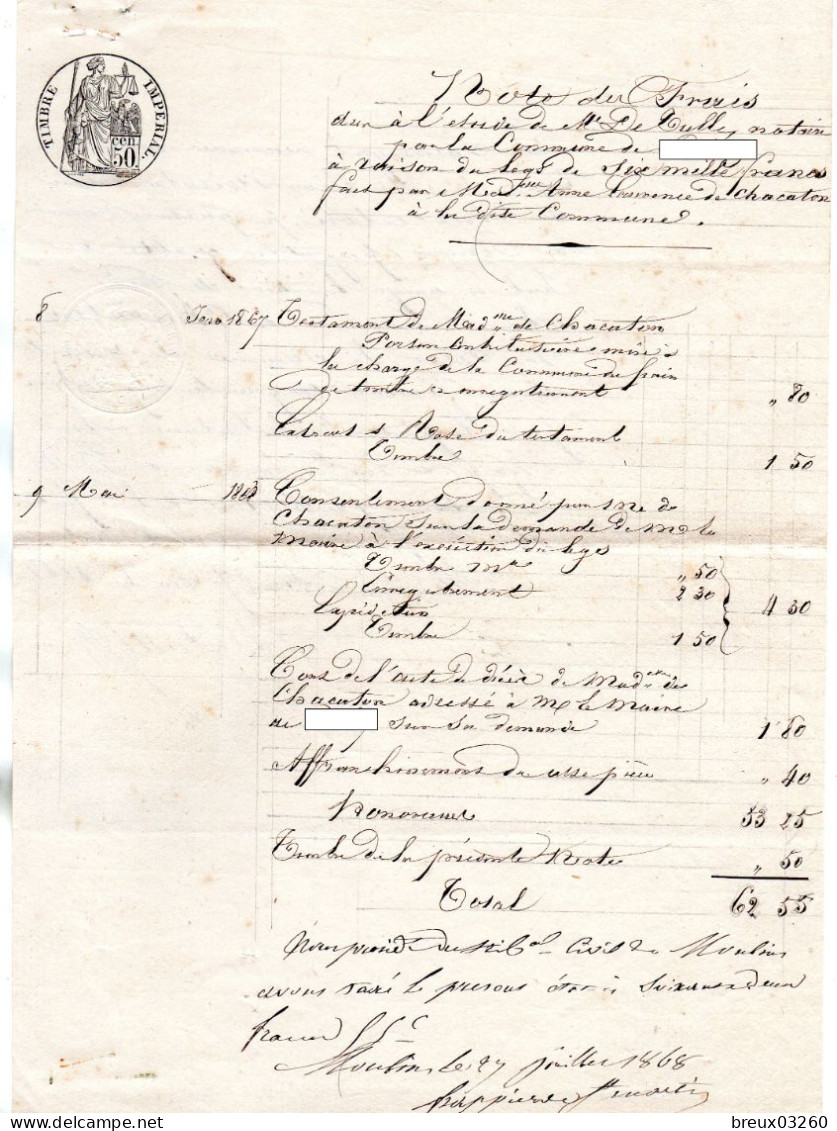 TIMBRE IMPERIAL.
CEN. 50.
Note des Frais
dus à l'étude de Me De Tulle, notaire
par la Commune de
à raison du legs de Six mille francs
fait par Mad. Anne Laurence de Chacaton
à la dite Commune.
8 Jer 1867 Testament de Madme de Chacaton
Portion mise à
la charge de la Commune du frais
de timbre enregistrement " 80
Extrait du testament
Timbre 1 50
9 Mai Consentement donné par Me de
Chacaton sur la demande de Mr le
Maire à l'exécution du legs
Timbre " 50
Enregistrement 2 30
Expédition
Timbre 1 50
4 30
de l'acte de décès de Mad de
Chacaton adressé à Mr le Maire
de sur sa demande 1 80
Affranchissement de cette pièce " 40
Honoraires 53 25
Timbre de la présente Note " 50
Total 62 55
Nous président du tribal Civil de Moulins
avons taxé le présent état à Soixante deux
francs 55c
Moulins le 27 juillet 1868
breux03260